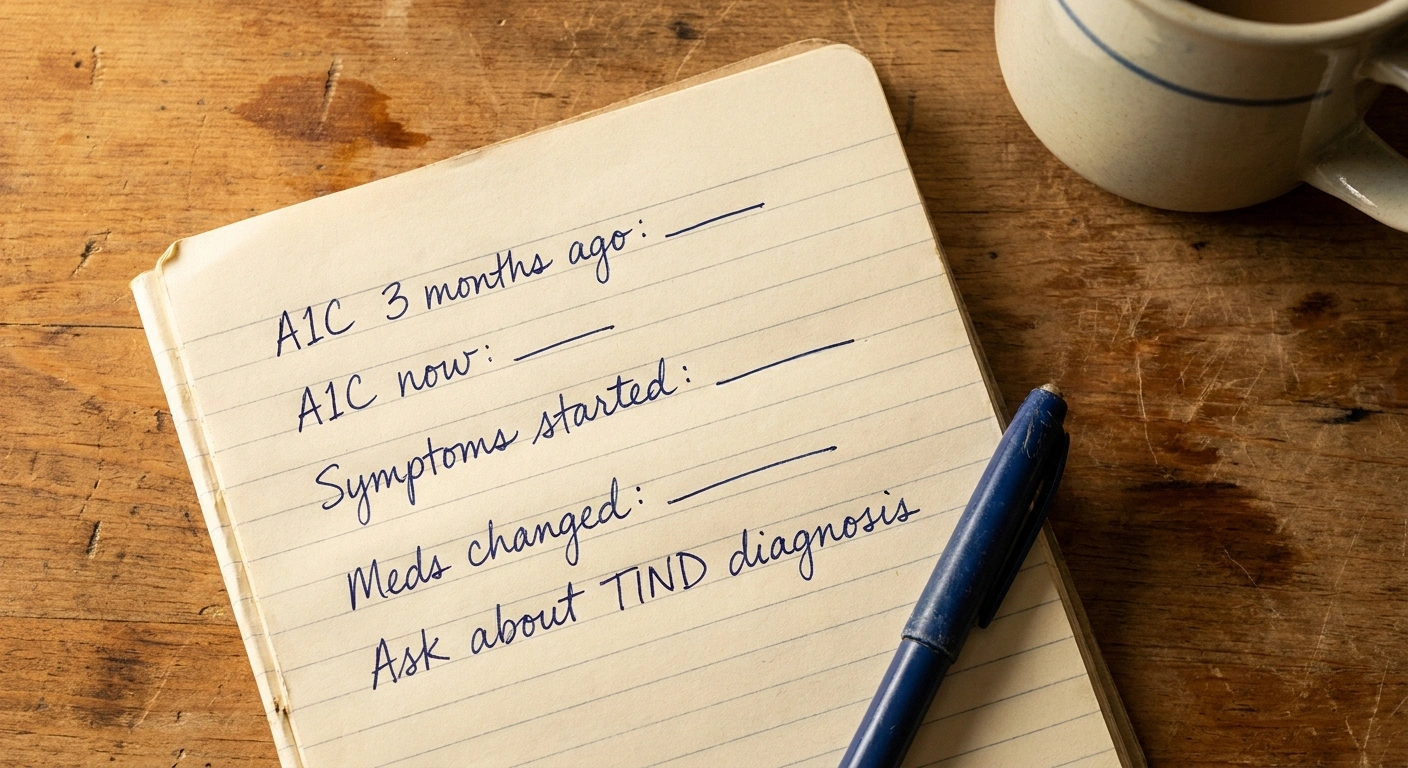 A1C 3 months ago: ____
A1C now: ____
Symptoms started: ____
Meds changed: ____
Ask about TIND diagnosis